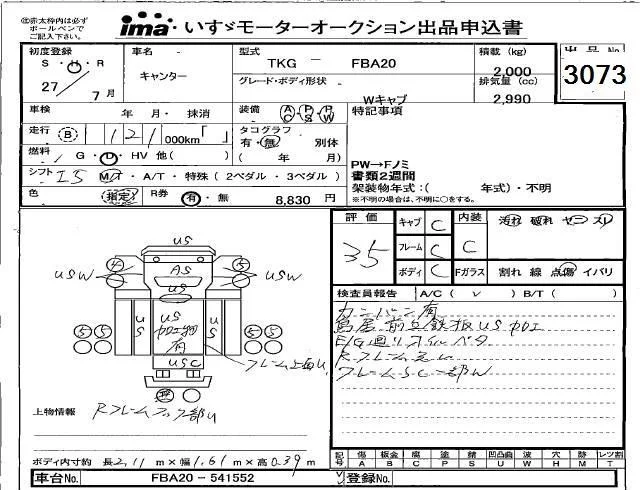 ㊟赤太枠内は必ず
ボールペンで
ご記入下さい。
ima いすゞモーターオークション出品申込書
初度登録 車名 型式 積載 (kg) 出品No.
S・H・R キャンター TKG － FBA20 2,000 3073
27 7月 グレード・ボディ形状 Wキャブ 排気量 (cc) 2,990
車検 年 月・ 抹消 装備 A C P S P W 特記事項
走行 B 121 000km「 」 タコグラフ 有・無 別体
燃料 G・D・HV 他( ) ( 年 月)
PW→Fノミ
書類2週間
シフト I5 M/T・A/T・特殊 (2ペダル・3ペダル)
架装物年式:( 年式)・不明
※不明の場合は、不明に○をする。
色 指定 R券 有・無 8,830 円
評価 キャブ C 内装 汚れ 破れ ヤニ スリ
3.5 フレーム C C
ボディ C Fガラス 割れ 線 点傷 イバリ
検査員報告 A/C( ✓ ) B/T( )
カンバン有
鳥居前立鉄板US加工
E/G廻りオイルベタ
フレームSC一部W
US
USW AS USW
US
US US加工物有 US
USC
フレーム上面U
上物情報 Rフレームフック部U
ボディ内寸約 長2.11m×幅1.61m×高0.39m
記号 傷 板金 腐 塗 錆 凹凸曲 波 穴 跡 レツ割
A B C P S U W H M T
車台No. FBA20－541552 登録No.